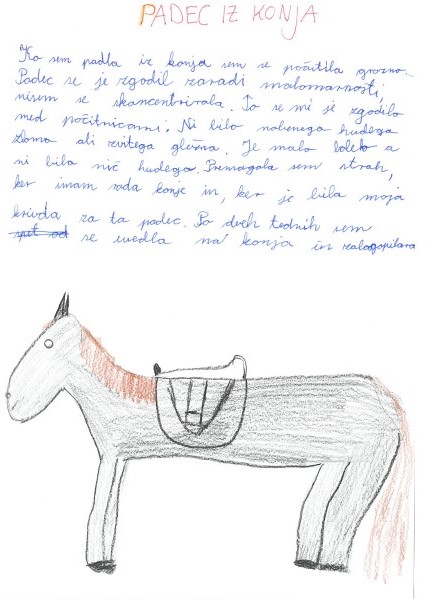 PADEC IZ KONJA
Ko sem padla iz konja sem se počutila grozno.
Padec se je zgodil zaradi malomarnosti,
nisem se skoncentrirala. To se mi je zgodilo
med počitnicami. Ni bilo nobenega hudega
zloma ali zvitega gležna. Je malo bolelo a
ni bila nič hudega. Premagala sem strah,
ker imam rada konje in, ker je bila moja
krivda za ta padec. Po dveh tednih sem
se uvedla na konja in zalagopilara